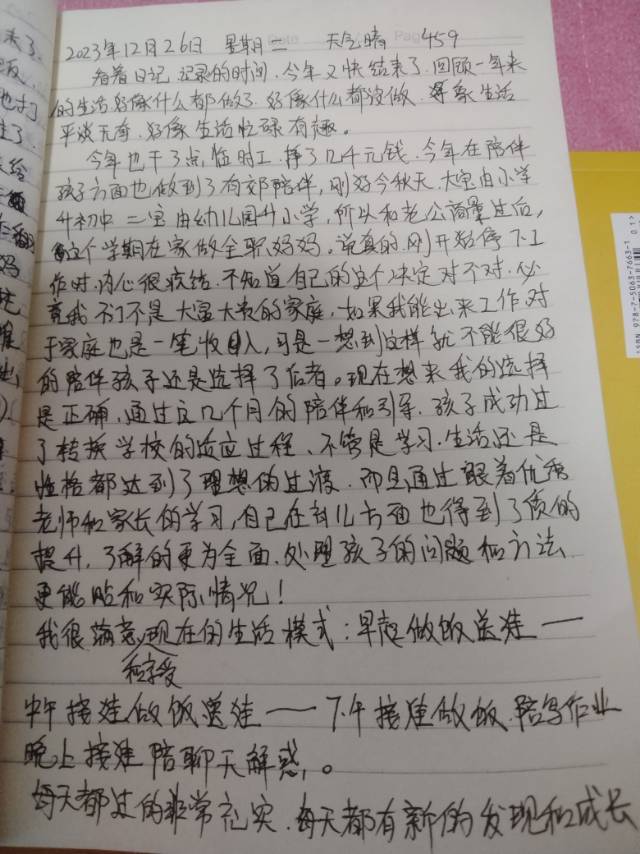 2023年12月26日 星期二 天气晴 459
看着日记,记录的时间,今年又快结束了,回顾一年来
的生活好像什么都做了,好像什么都没做,好像生活
平淡无奇,好像生活忙碌有趣。
今年也干了点临时工,挣了几千元钱,今年在陪伴
孩子方面也做到了有效陪伴,刚好今秋天,大宝由小学
升初中 二宝由幼儿园升小学,所以和老公商量过后,
这个学期在家做全职妈妈。说真的,刚开始停下工
作时,内心很疚结,不知道自己的这个决定对不对,必
竟我们不是大富大贵的家庭,如果我能出来工作对
于家庭也是一笔收入,可是一想到这样就不能很好
的陪伴孩子还是选择了后者。现在想来我的选择
是正确,通过这几个月的陪伴和引导,孩子成功过
了转换学校的适应过程,不管是学习、生活还是
性格都达到了理想的过渡,而且通过跟着优秀
老师和家长的学习,自己在育儿方面也得到了质的
提升,了解的更为全面,处理孩子的问题和方法
更能贴和实际情况!
我很满意和享受现在的生活模式:早起做饭送娃——
中午接娃做饭送娃——下午接娃做饭,陪写作业
晚上接娃陪聊天解惑,。
每天都过的非常充实,每天都有新的发现和成长
ISBN 978-7-5063-7663-1